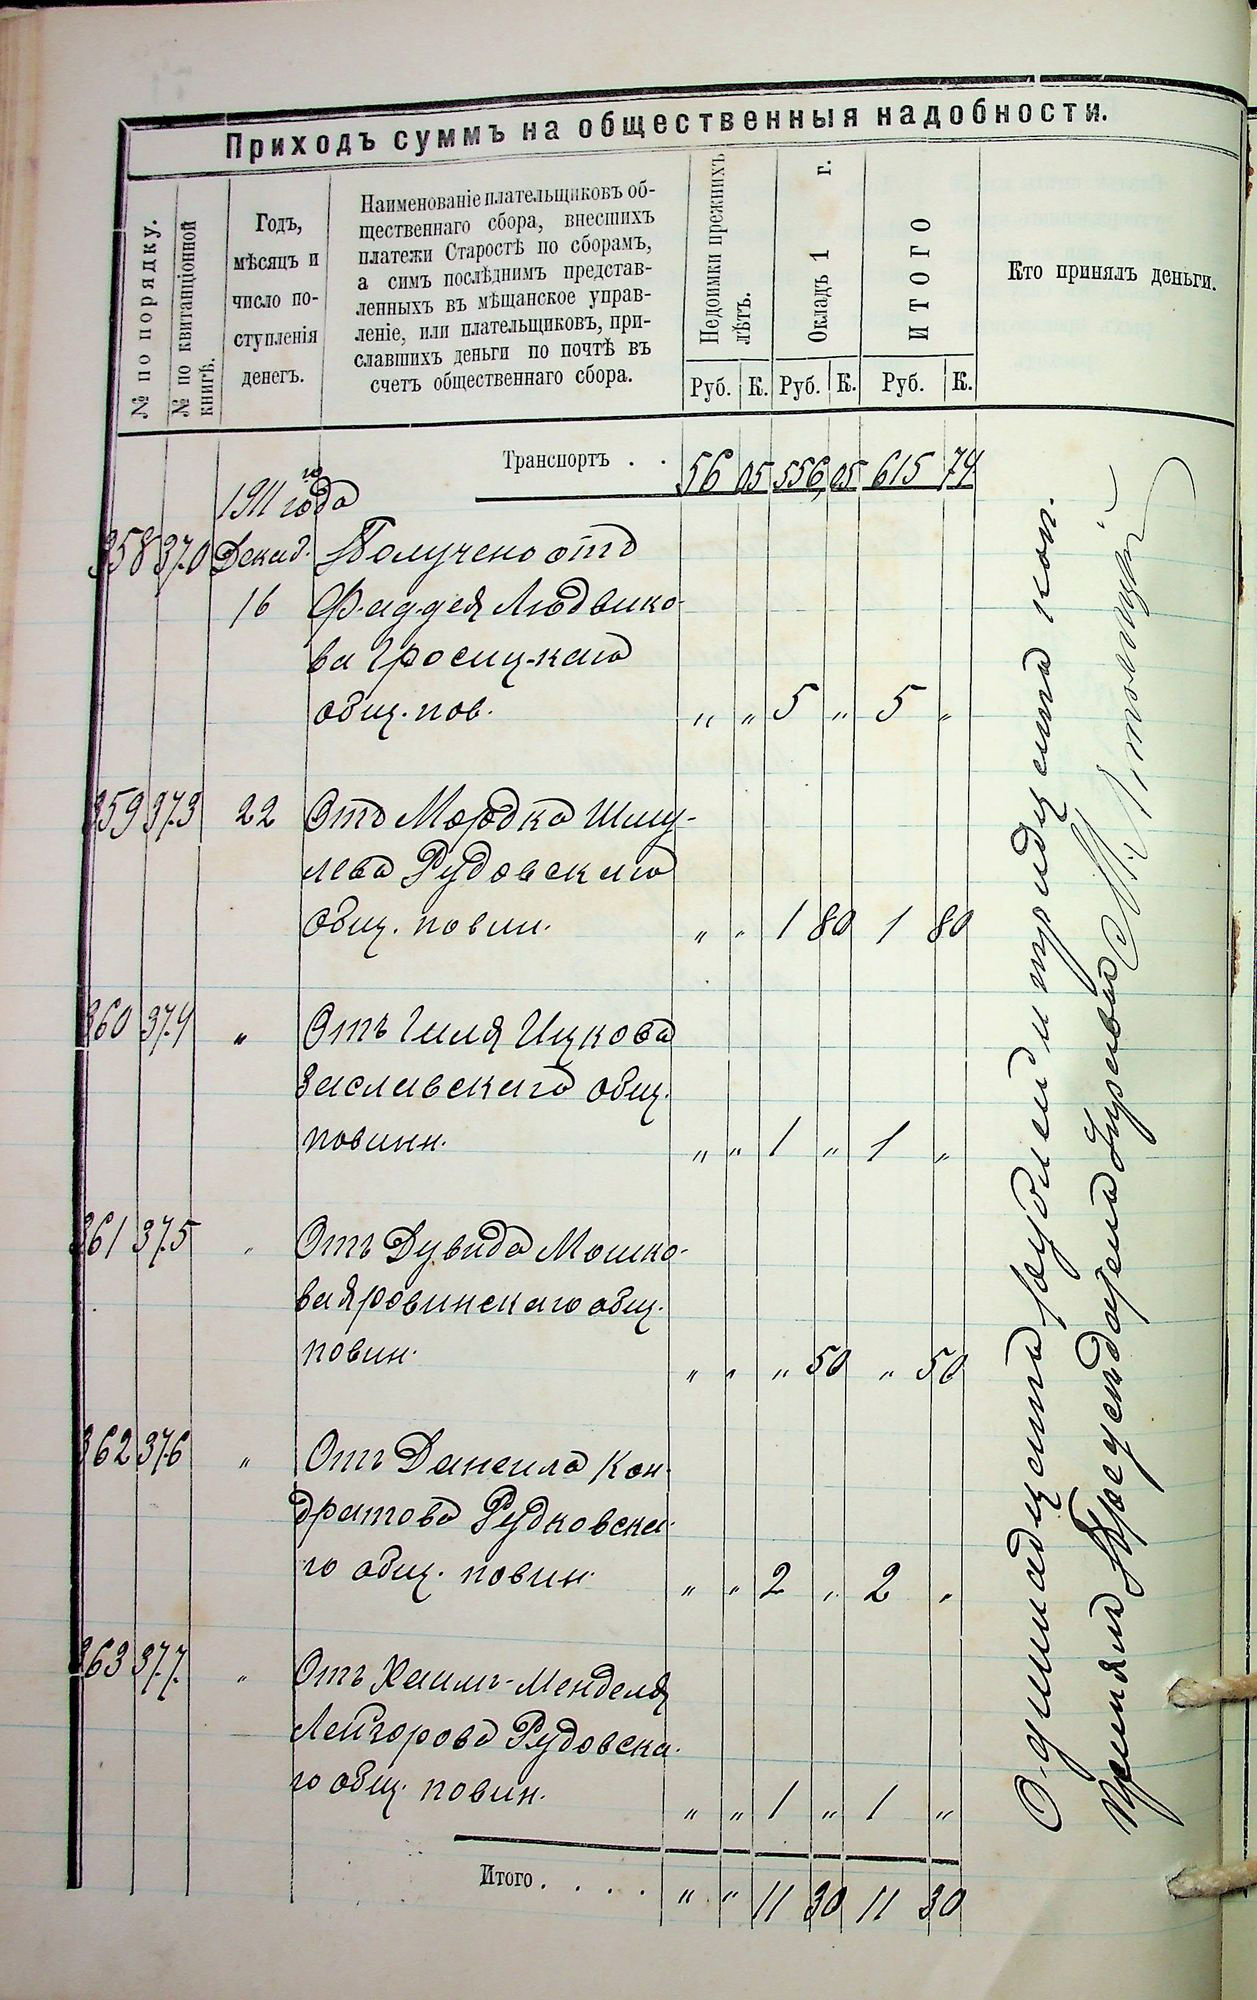 Приходъ суммъ на общественныя надобности.
№ по порядку.
№ по квитанціонной
книгѣ.
Годъ,
мѣсяцъ и
число по-
ступленія
денегъ.
Наименованіе плательщиковъ об-
щественнаго сбора, внесшихъ
платежи Старостѣ по сборамъ,
а симъ послѣднимъ представ-
ленныхъ въ мѣщанское управ-
леніе, или плательщиковъ, при-
славшихъ деньги по почтѣ въ
счетъ общественнаго сбора.
Недоимки прежнихъ
лѣтъ.
Окладъ 1 г.
ИТОГО
Кто принялъ деньги.
Руб. К. Руб. К. Руб. К.
Транспортъ . . 56 05 556,05 615 74
1911 го года
358 370 Декаб. Получено отъ
16 Фаддея Людвико-
ва Гросицкаго
общ. пов. „ „ 5 „ 5 „
359 373 22 Отъ Мордка Шму-
лева Рудовскаго
общ. повин. „ „ 1 80 1 80
360 374 „ Отъ Гиля Ицкова
Заславскаго общ.
повинн. „ „ 1 „ 1 „
361 375 „ Отъ Дувида Мошко-
ва Яровинскаго общ.
повин. „ „ „ 50 „ 50
362 376 „ Отъ Данеила Кон-
дратова Рудковска-
го общ. повин. „ „ 2 „ 2 „
363 377. „ Отъ Хаимъ-Менделя
Лейзорова Рудовска-
го общ. повин. „ „ 1 „ 1 „
Итого . . . . „ „ 11 30 11 30
Одиннадцать рублей и тридцать коп.
принялъ Управы